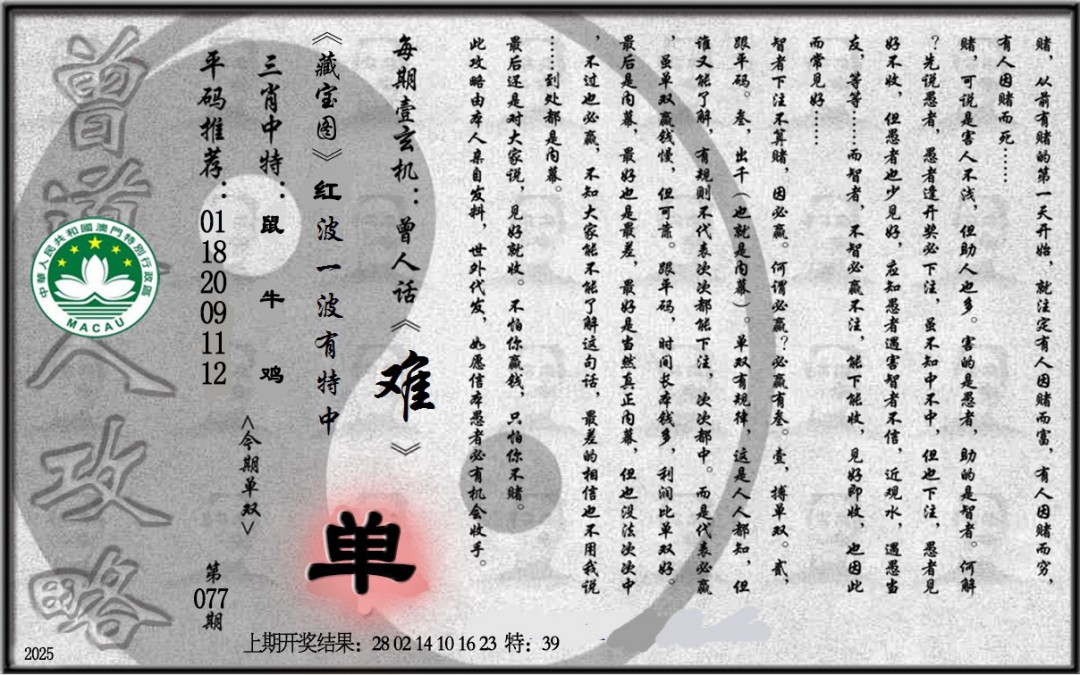 赌，从前有赌的第一天开始，就注定有人因赌而富，有人因赌而穷，
有人因赌而死……
赌，可说是害人不浅，但助人也多。害的是愚者，助的是智者。何解
？先说愚者，愚者逢开奖必下注，虽不知中不中，但也下注，愚者见
好不收，但愚者也少见好，应知愚者遇害智者不信，近观水，遇愚当
友，等等……而智者，不智必赢不注，能下能收，见好即收，也因此
而常见好……
智者下注不算赌，因必赢。何谓必赢？必赢有叁。壹，搏单双。贰，
跟平码。叁，出千（也就是内幕）。单双有规律，这是人人都知，但
谁又能了解，有规则不代表次次都能下注，次次都中。而是代表必赢
，虽单双赢钱慢，但可靠。跟平码，时间长本钱多，利润比单双好。
最后是内幕，最好也是最差，最好是当然真正内幕，但也没法次次中
，不过也必赢，不知大家能不能了解这句话，最差的相信也不用我说
……到处都是内幕。
最后还是对大家说，见好就收。不怕你赢钱，只怕你不赌。
此攻略由本人亲自发料，世外代发，如愿信本愚者必有机会收手。
每期壹玄机：曾人话《难》
《藏宝图》红波一波有特中
单
三肖中特：鼠牛鸡
<今期单双>
平码推荐：01 18 20 09 11 12
第077期
曾道人攻略
中華人民共和國澳門特別行政區
MACAU
上期开奖结果：28 02 14 10 16 23 特：39
2025